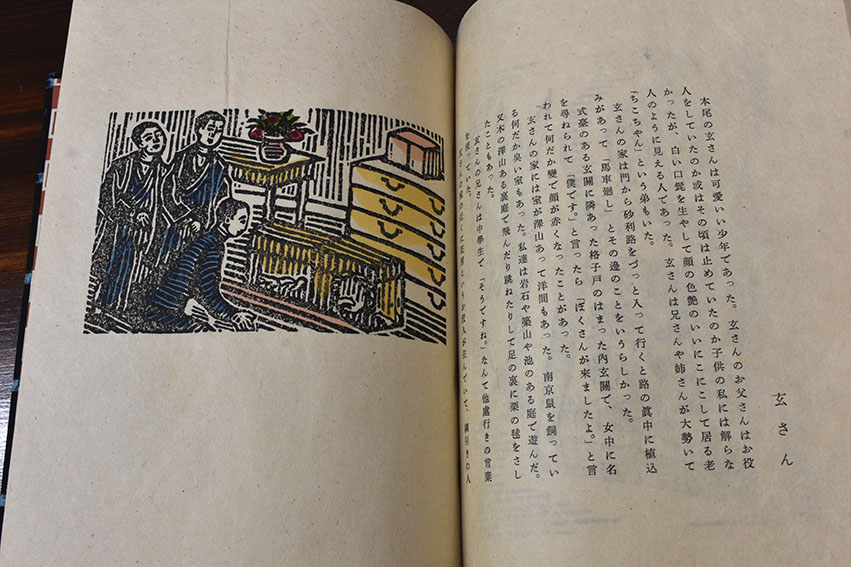 玄さん
本尾の玄さんは可愛いい少年であった。玄さんのお父さんはお役
人をしていたのか或はその頃は止めていたのか子供の私には解らな
かったが、白い口髭を生やして顔の色艶のいいにこにこして居る老
人のように見える人であった。玄さんは兄さんや姉さんが大勢いて
「ちこちゃん」という弟もいた。
玄さんの家は門から砂利路をづっと入って行くと路の眞中に植込
みがあって「馬車廻し」とその邊のことをいうらしかった。
式臺のある玄關に隣あった格子戸のはまった内玄關で、女中に名
を尋ねられて「僕です。」と言ったら「ぼくさんが來ましたよ。」と言
われて何だか變で顔が赤くなったことがあった。
玄さんの家には室が澤山あって洋間もあった。南京鼠を飼ってい
る何だか臭い室もあった。私達は岩石や築山や池のある庭で遊んだ。
又木の澤山ある裏庭で飛んだり跳ねたりして足の裏に栗の毬をさし
たこともあった。
玄さんの兄さんは中學生で「そうですね。」なんて他處行きの言葉
を使っていた。
玄さんの家の近くに
という
人が住んでいて、綱引きの人